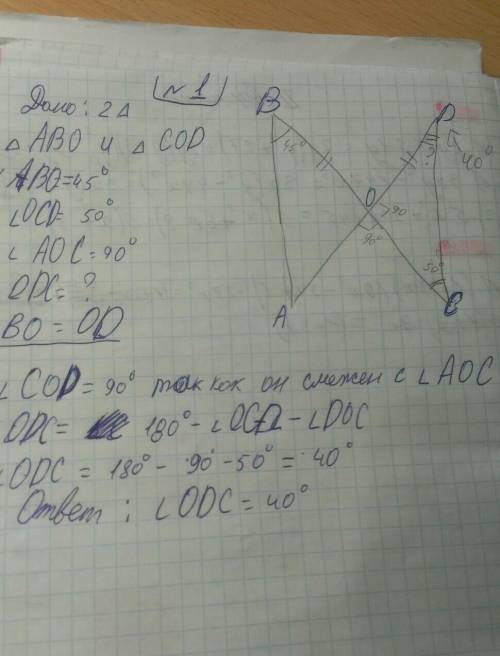 N 1
Дано: 2Δ
Δ ABO и Δ COD
ABO=45°
∠OCD= 50°
∠ AOC=90°
ODC=?
BO = OD
B
D
45°
?
40°
O
90
90°
50°
A
C
∠COD=90° так как он смежен с ∠AOC
ODC= 180°-∠OCD-∠DOC
∠ODC = 180°- 90°-50°= 40°
Ответ: ∠ODC=40°